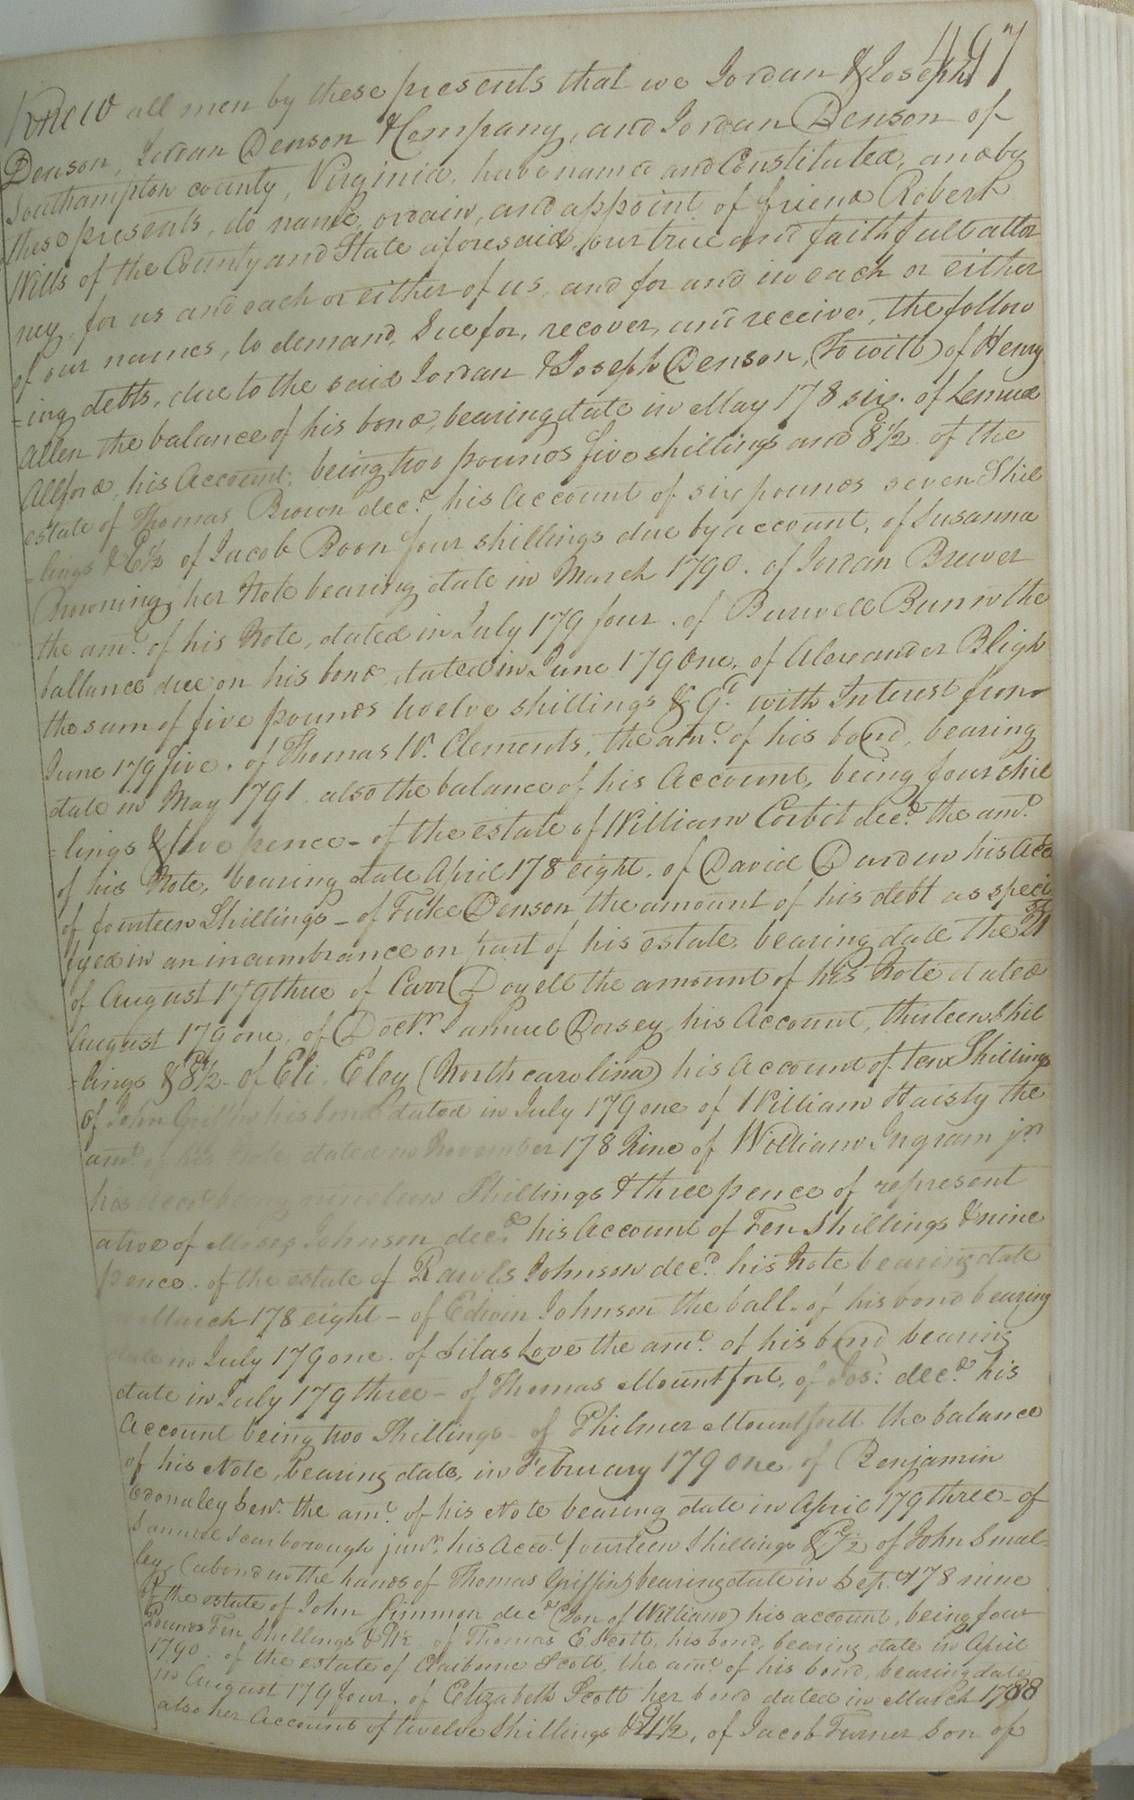 497
Know all men by these presents that we Jordan & Joseph
Denson, Jordan Denson & Company, and Jordan Denson of
Southampton county, Virginia, have named and Constituted, and by
these presents, do name, ordain, and appoint of friend Robert
Wills of the County and State aforesaid, our true and faithfull attor
ney, for us and each or either of us, and for and in each or either
of our names, to demand, Sue for, recover, and receive, the follow
-ing debts, due to the said Jordan & Joseph Denson, (To wit) of Henry
Allen the balance of his bond, bearing date in May 178 six. of Lemuel
Allford, his Account, being two pounds five shillings and 8½ of the
estate of Thomas Brown decd. his Account of six pounds seven Shil
-lings & 6½ of Jacob Boon four shillings due by account, of Susanna
Browning her Note bearing date in March 1790. of Jordan Brewer
the amt. of his Note, dated in July 179 four. of Burwell Bunn the
ballance due on his bond dated in June 179 One. of Alexander Bligh
the sum of five pounds twelve shillings & 9d. with Interest from
June 179 five. of Thomas W. Clements, the amt. of his bond, bearing
date in May 1791. also the balance of his Account, being four shil
-lings & five pence - of the estate of William Corbit decd. the amt.
of his Note, bearing date April 178 eight. of David Durden his Acct
of fourteen Shillings - of Tuke Denson the amount of his debt as speci
fyed in an incumbrance on part of his estate, bearing date the 21st
of August 179 three of Carr Doyell the amount of his Note dated
August 179 one, of Doctr. Samuel Dorsey his Account, thirteen Shil
-lings & 8½ - of Eli Eley (North carolina) his Account of ten Shillings
of John Griffin his bond dated in July 179 one of William Haisty the
amt. of his note dated in November 178 Nine of William Ingram jr.
his Acct being nineteen Shillings & three pence of represent
ative of Moses Johnson decd. his Account of Ten Shillings & nine
pence. of the estate of Rawls Johnson decd. his Note bearing date
March 178 eight - of Edwin Johnson the ball. of his bond bearing
date in July 179 one. of Silas Love the amt. of his bond bearing
date in July 179 three - of Thomas Mountfort, of Jos: decd. his
Account being two Shillings - of Philmer Mountfort the balance
of his Note, bearing date, in February 179 One. of Benjamin
Odonaley Senr. the amt. of his Note bearing date in April 179 three - of
Samuel Scarborough junr. his Acco. fourteen Shillings & 7½ of John Smal-
ley (a bond in the hands of Thomas Griffin) bearing date in Sept. 178 nine
of the estate of John Simmon decd. (Son of William) his account, being four
Pounds Ten Shillings & 1½. of Thomas E. Scott, his bond, bearing date in April
1790. of the estate of Claiborne Scott, the amt. of his bond, bearing date
in August 179 four. of Elizabeth Scott her bond dated in March 1788
also her Account of twelve Shillings & 11½, of Jacob Turner Son of